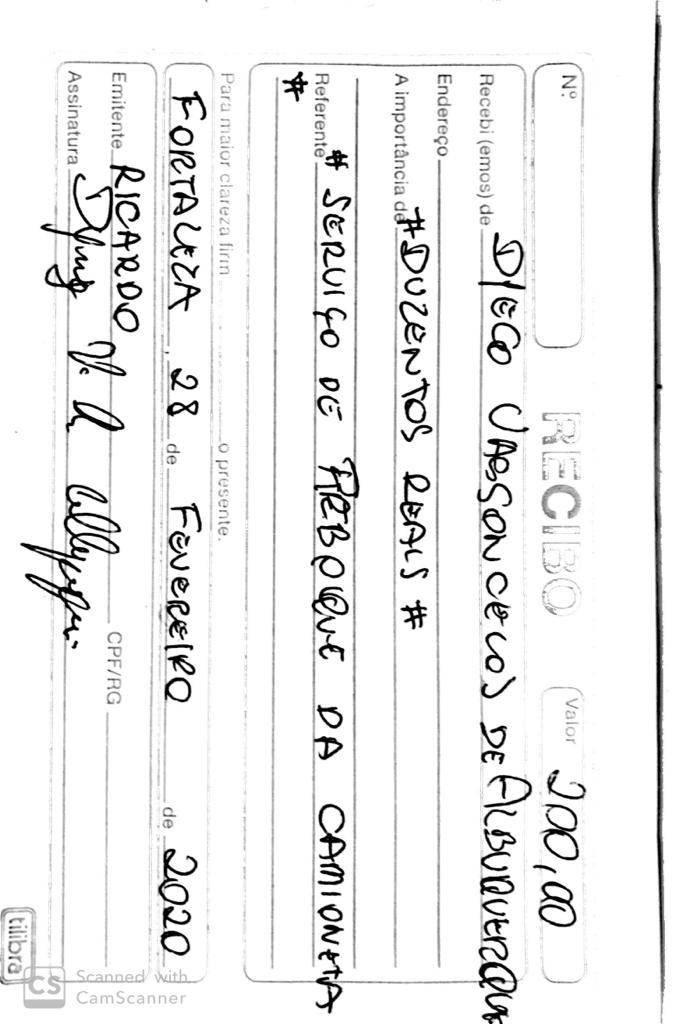 Nº
RECIBO
Valor 200,00
Recebi (emos) de DIEGO VASSONCELOS DE ALBUQUERQUE
Endereço
A importância de #DUZENTOS REAIS #
Referente # SERVIÇO DE REBOQUE DA CAMIONETA
#
Para maior clareza firm o presente.
FORTALEZA, 28 de FEVEREIRO de 2020
Emitente RICARDO CPF/RG
Assinatura
tilibra
CS Scanned with
CamScanner